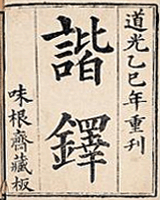 道光乙巳年重刊
諧鐸
味根齋藏板